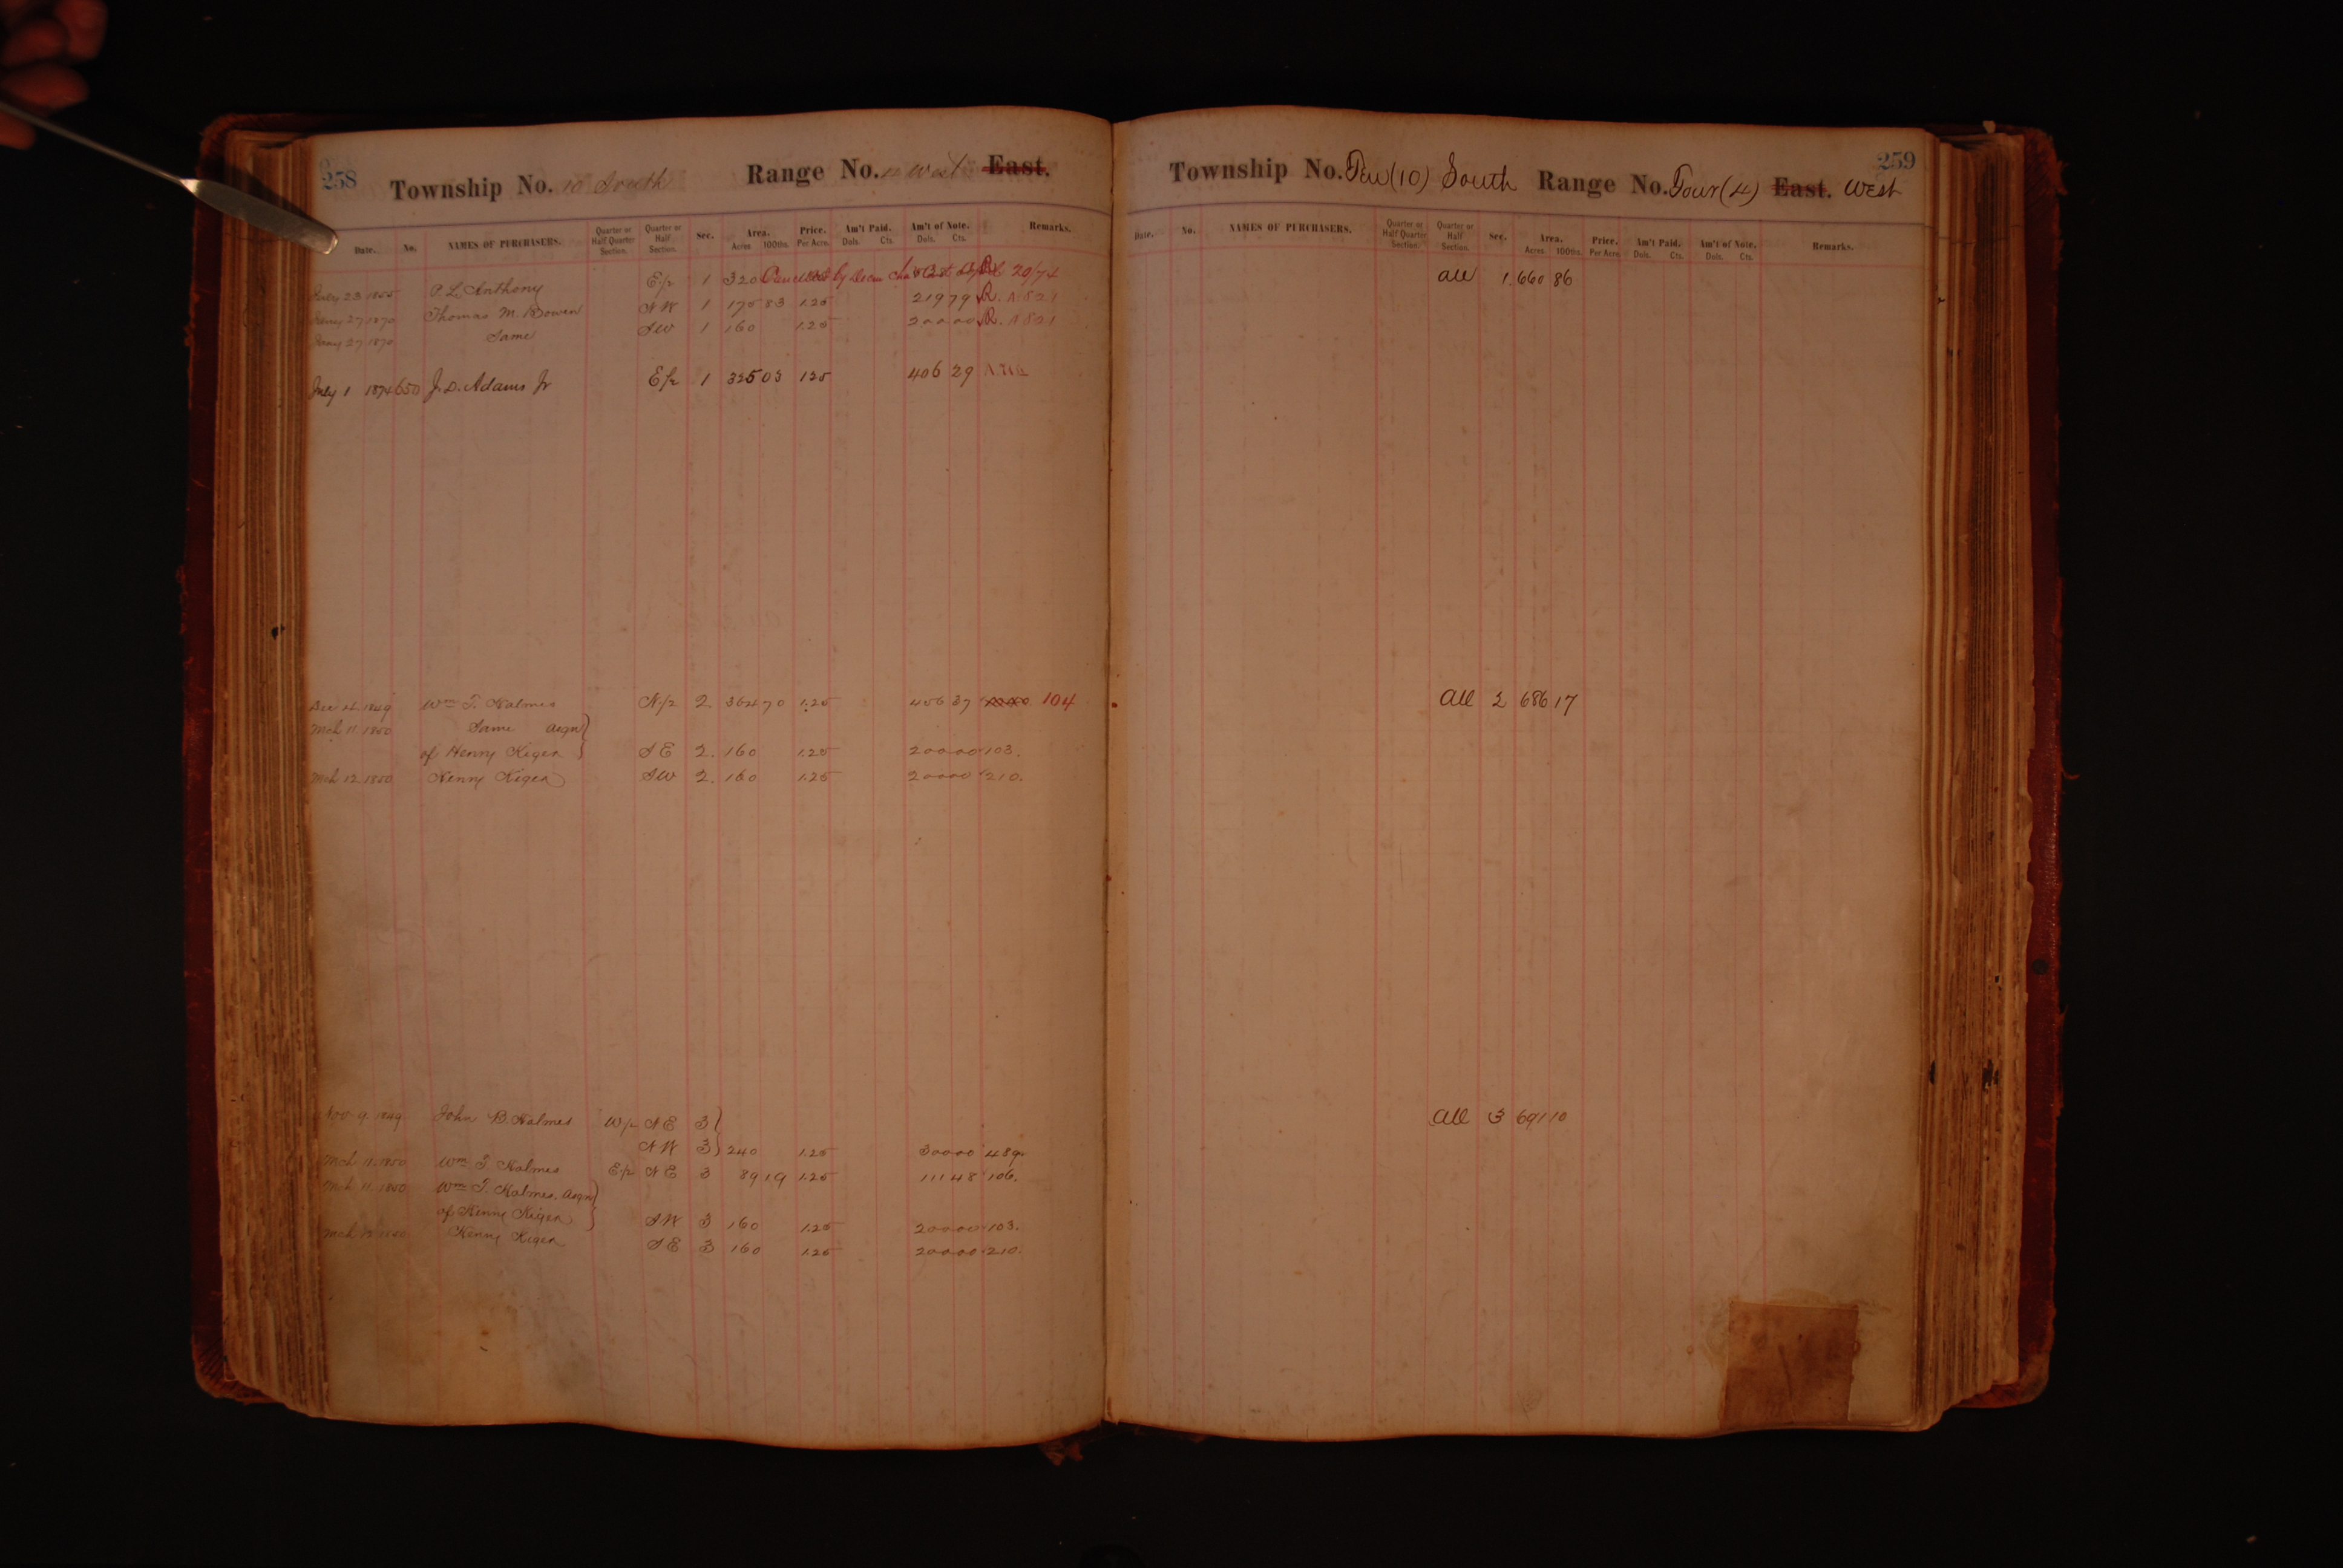 258
Township No. 10 South Range No. 4 West East.
Date. No. NAMES OF PURCHASERS. Quarter or Half Quarter Section. Quarter or Half Section. Sec. Area. Acres 100ths. Price. Per Acre. Am't Paid. Dols. Cts. Am't of Note. Dols. Cts. Remarks.
23 1855 P. L. Anthony E/2 1 320 Cancelled by 20/74
27 1870 Thomas M. Bowen NW 1 175 83 1.25 219 79 R. 1821
27 1870 Same SW 1 160 1.25 200 00 R. 1821
July 1 1874 650 J. D. Adams Jr E/2 1 325 03 1 25 406 29
Dec 24 1849 Wm T. Halmes N/2 2. 364 70 1.25 456 37 104
Mch 11. 1850 Same Asgn
of Henry Kigen SE 2. 160 1.25 200 00 103.
Mch 12. 1850 Henry Kigen SW 2. 160 1.25 200 00 210.
Nov 9. 1849 John B. Halmes W/2 NE 3
NW 3 240 1.25 300 00 489.
Mch 11. 1850 Wm T. Halmes E/2 NE 3 89 19 1.25 111 48 106.
Mch 11. 1850 Wm T. Halmes. Asgn
of Henry Kigen SW 3 160 1.25 200 00 103.
Mch 12 1850 Henry Kigen SE 3 160 1.25 200 00 210.
259
Township No. Ten (10) South Range No. Four (4) East. West
Date. No. NAMES OF PURCHASERS. Quarter or Half Quarter Section. Quarter or Half Section. Sec. Area. Acres 100ths. Price. Per Acre. Am't Paid. Dols. Cts. Am't of Note. Dols. Cts. Remarks.
All 1. 660 86
All 2 686 17
All 3 691 10